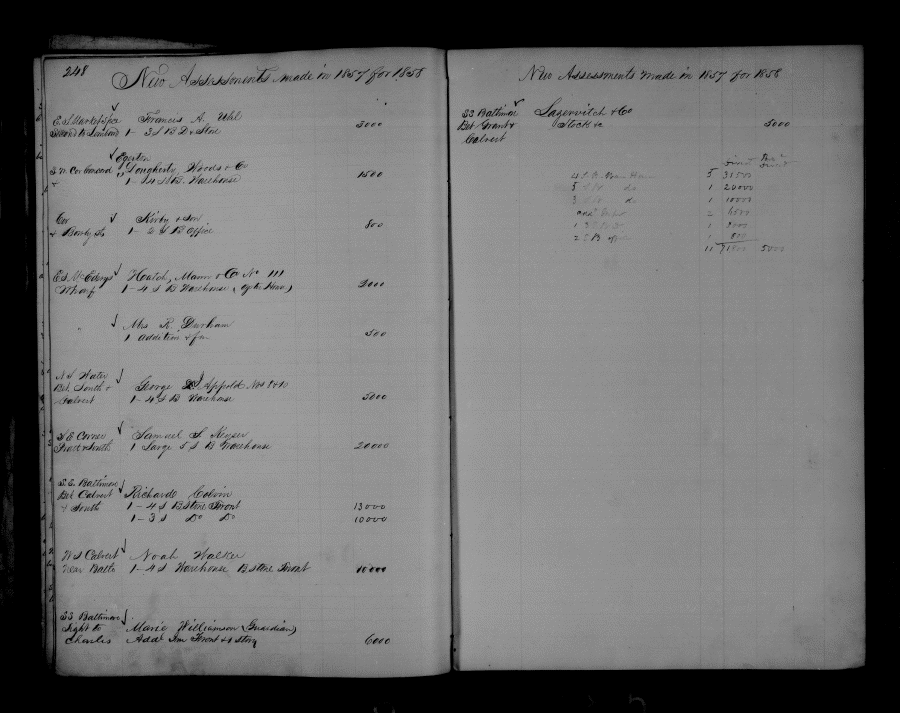 248
New Assessments made in 1857 for 1858
E S Market Space Frances A. Uhl
Second & Lombard 1- 3 S B D & Store 3000
Egerton
Dougherty, Woods & Co
1- 4 S B. Warehouse 1500
Cor Kirby & Son
& Bowly Sts 1- 2 S B Office 800
E S McElderys Hatch, Mann & Co No 111
Wharf 1- 4 S B Warehouse 2000
Mrs R. Durham
1 Addition 500
N S Water
Bet South & George Appold Nos 8 & 10
Calvert 1- 4 S B Warehouse 5000
S E Corner Samuel S Keyser
Pratt & South 1 Large 5 S B Warehouse 20000
S.S. Baltimore
Bet Calvert Richard Colvin
& South 1- 4 S B Stone Front 13000
1- 3 S Do Do 10000
W S Calvert Noah Walker
near Balto 1- 4 S Warehouse B Stone Front 10000
SS Baltimore
Light to Marie Williamson (Guardian)
Charles Addl Im Front & 1 Story 6000
New Assessments made in 1857 for 1858
SS Baltimore & Co
Bet Grant & Stock &c 5000
Calvert
4 S B. 5 31500
5 do 1 20000
3 do 1 10000
2 6500
1 1 3000
2 S B 1 800
11 71800 5000